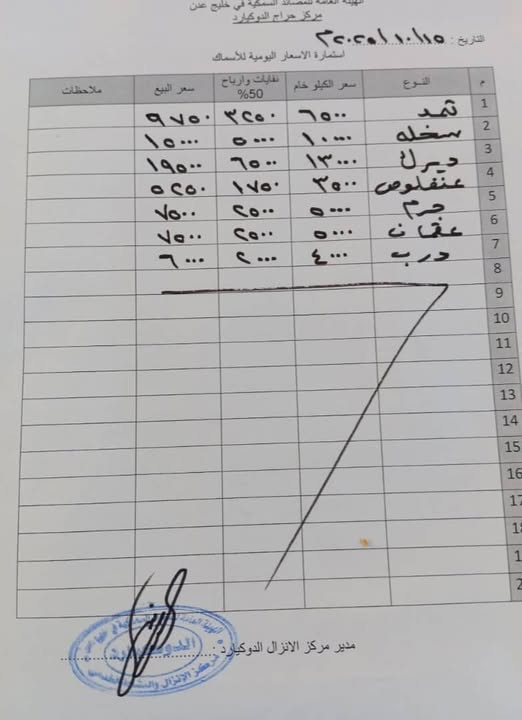 الهيئة العامة للمصائد السمكية في خليج عدن
مركز حراج الدوكيارد
التاريخ : ٢٠٢٥/١٠/١٥م
استمارة الاسعار اليومية للأسماك
م النوع سعر الكيلو خام نفايات وارباح 50% سعر البيع ملاحظات
1 ثمد ٦٥٠٠ ٣٢٥٠ ٩٧٥٠
2 سخله ١٠٠٠٠ ٥٠٠٠ ١٥٠٠٠
3 ديرك ١٣٠٠٠ ٦٥٠٠ ١٩٥٠٠
4 عنفلوص ٣٥٠٠ ١٧٥٠ ٥٢٥٠
5 جرم ٥٠٠٠ ٢٥٠٠ ٧٥٠٠
6 عقمان ٥٠٠٠ ٢٥٠٠ ٧٥٠٠
7 درب ٤٠٠٠ ٢٠٠٠ ٦٠٠٠
8
9
10
11
12
13
14
15
16
17
18
1
2
مدير مركز الانزال الدوكيارد :